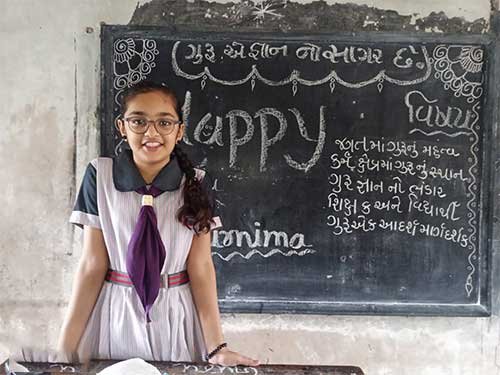 ગુરુ એ જ્ઞાન નો સાગર છે.
Happy
વિષય
જીવનમાં ગુરુનું મહત્વ
કર્મ ક્ષેત્રમાં ગુરુનું સ્થાન
ગુરુ જ્ઞાન નો ભંડાર
શિક્ષક અને વિદ્યાર્થી
ગુરુ એક આદર્શ માર્ગદર્શક
rnima